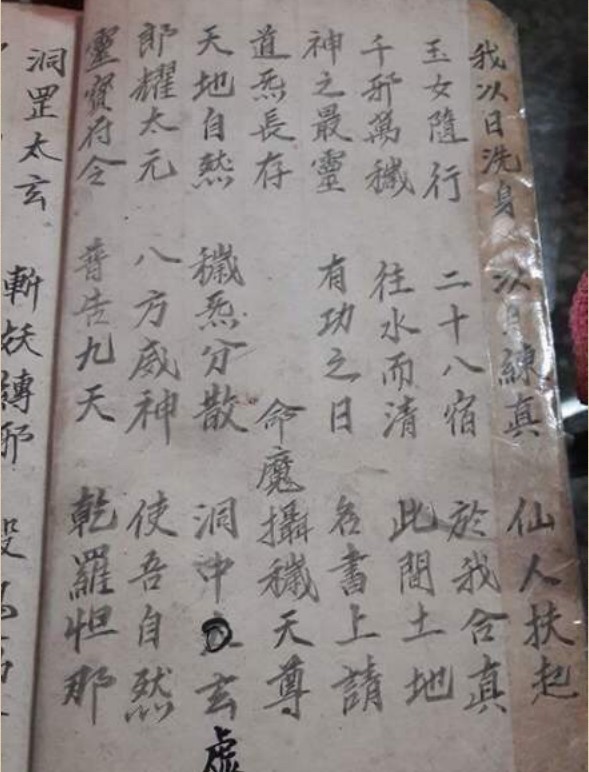 我以日洗身 以月練真 仙人扶起
玉女隨行 二十八宿 於我合真
千邪萬穢 往水而清 此間土地
神之最靈 有功之日 名書上請
道炁長存 命魔攝穢天尊
天地自然 穢炁分散 洞中玄虛
郎耀太元 八方威神 使吾自然
靈寶符令 普告九天 乾羅怛那
洞罡太玄 斬妖縛邪